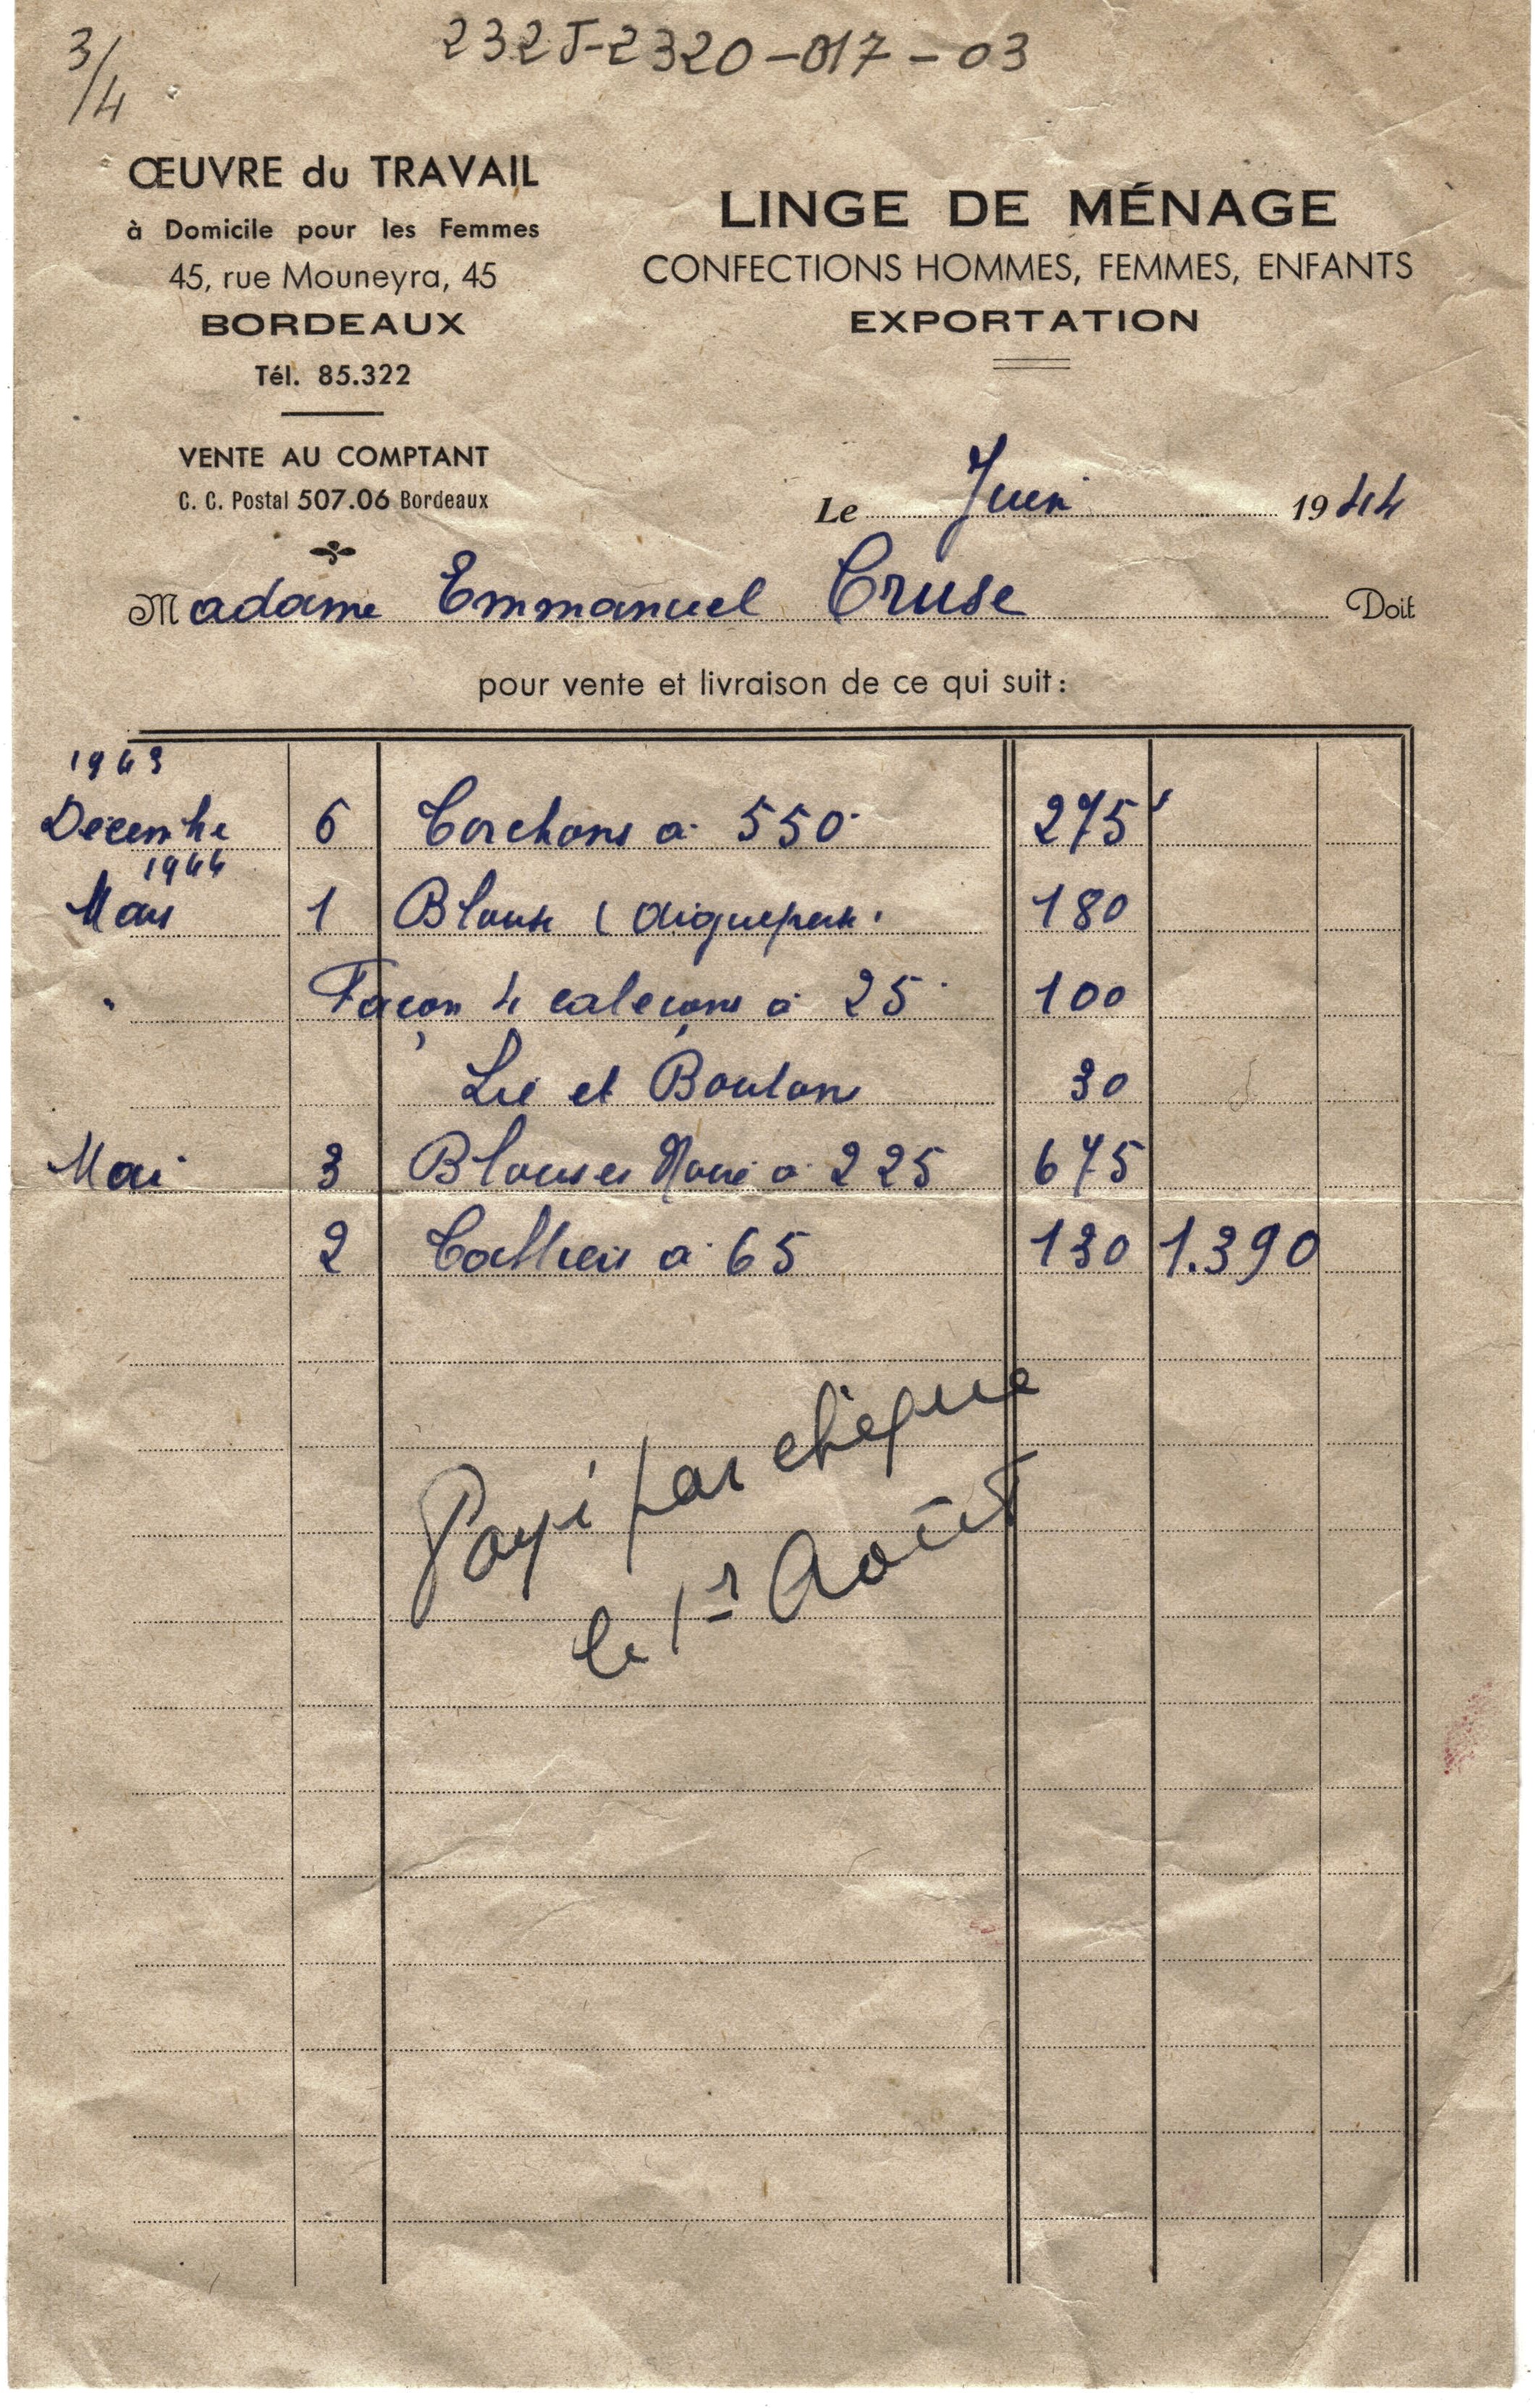 232J-2320-017-03
3/4
ŒUVRE du TRAVAIL
à Domicile pour les Femmes
45, rue Mouneyra, 45
BORDEAUX
Tél. 85.322
VENTE AU COMPTANT
C. C. Postal 507.06 Bordeaux
LINGE DE MÉNAGE
CONFECTIONS HOMMES, FEMMES, ENFANTS
EXPORTATION
Le Juin 1944
Madame Emmanuel Cruse Doit
pour vente et livraison de ce qui suit :
1943
Décembre 6 Torchons à 550 275
1944
Mars 1 Blouse 180
" Façon 4 caleçons à 25 100
et Boutons 30
Mai 3 Blouses à 225 675
2 à 65 130 1.390
Payé par chèque
le 1er Août